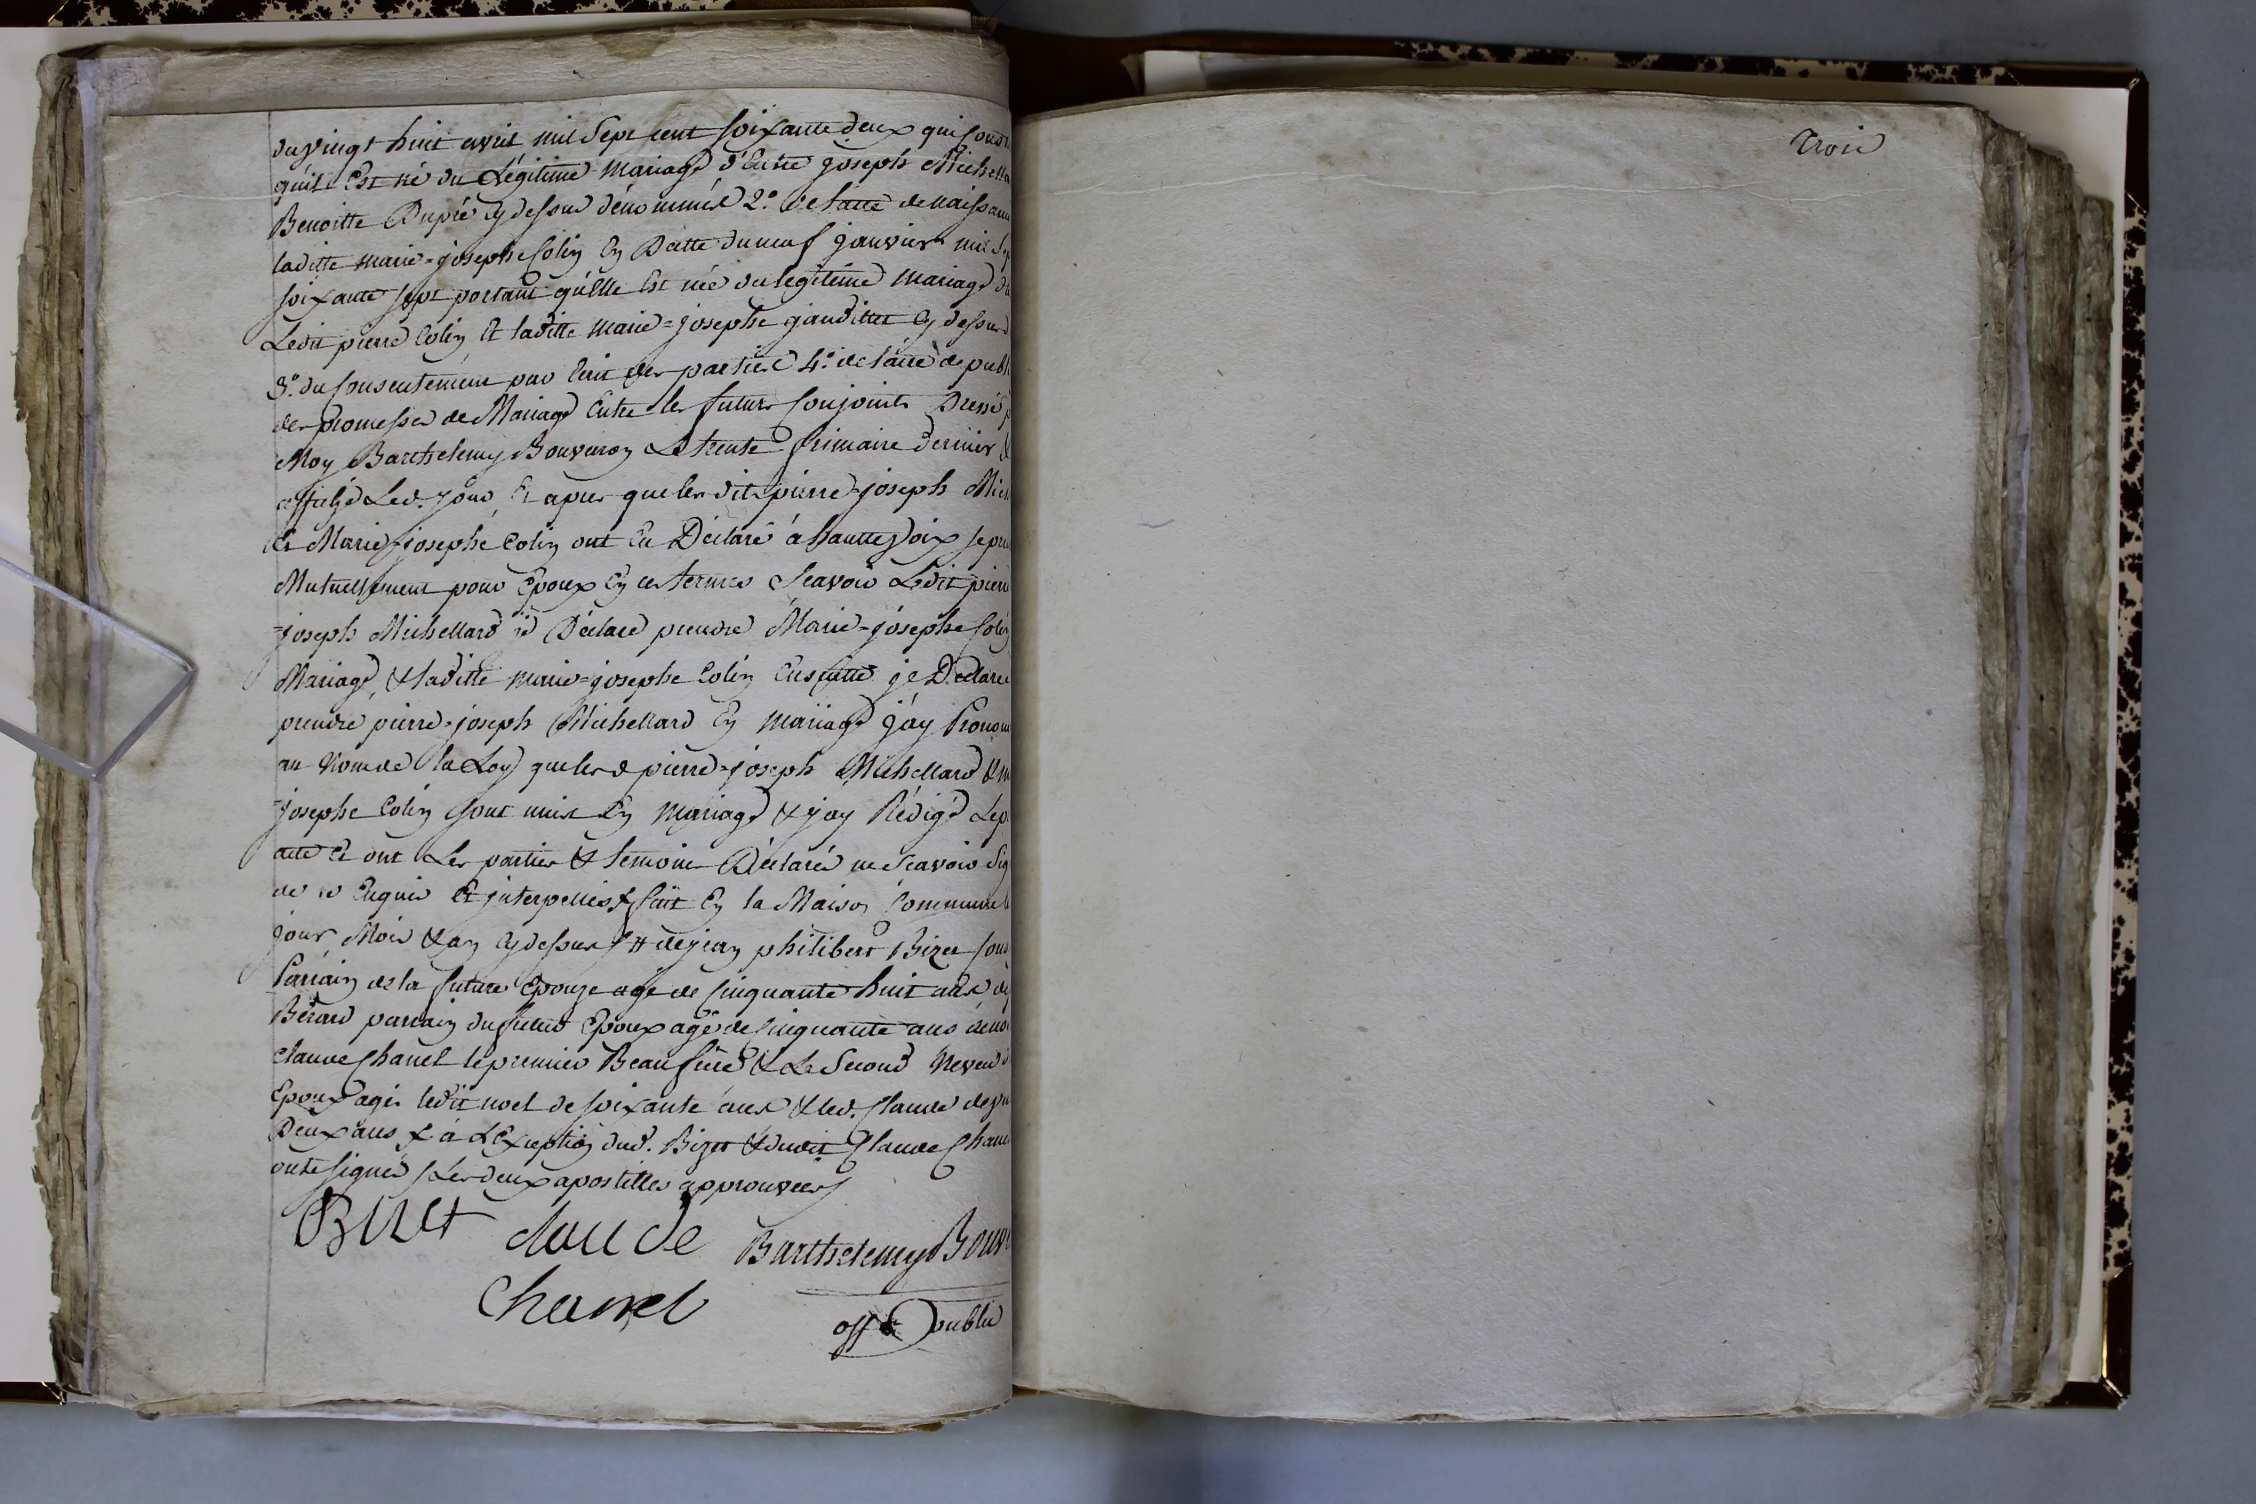 du vingt huit avril mil sept cent soixante deux qui
qu'il Est né du Légitime mariage d'Entre joseph Michella
Benoitte Dupré cy dessus dénommés 2.° de lacte de naissan
laditte marie=josephe Colin En Datte du neuf janvier mil
soixante sept portant qu'elle Est née du legitime mariage
Ledit pierre Colin Et laditte marie=josephe cy dessus
3.° du Consentement par Ecrit des parties 4.° de lacte de publ
des promesses de Mariage Entre les futurs Conjoints Dressé p
Moy Barthelemy Bouveron Le trente frimaire dernier &
affiché Led. jour, Et apres que les dits pierre=joseph Mich
Et Marie=josephe Colin ont Eu Déclaré à hautte Voix se pre
Mutuellement pour Epoux En ces termes Scavoir Ledit pierre
=joseph Michellard je Déclare prendre Marie=josephe Colin
Mariage, & laditte marie=josephe Colin Ensuitte je Déclare
prendre pierre=joseph Michellard En mariage j'ay Prononc
au Nom de la Loy que lesd pierre=joseph Michellard & m
=josephe Colin sont unis En mariage & j'ay Rédigé Le p
acte Et ont Les parties & temoins Déclarés ne Scavoir sig
de ce Enquis Et interpellés fait En la Maison Commune l
jour Mois & an cy dessus # de jean philibert Bizet
Parrain de la future Epouze agé de Cinquante huit ans de
Bérard parrain du futur Epoux agé de Cinquante ans
Claude Chanel le premier Beaufrere & Le Second Neveu d
Epoux agés ledit noel de soixante ans & led. Claude de
Deux ans à L'Exception dud. Bizet & dudit Claude Chane
onte signés Les deux apostilles approuvées
Bizet claude Barthelemy Bouv
Chanel
off publi
Trois